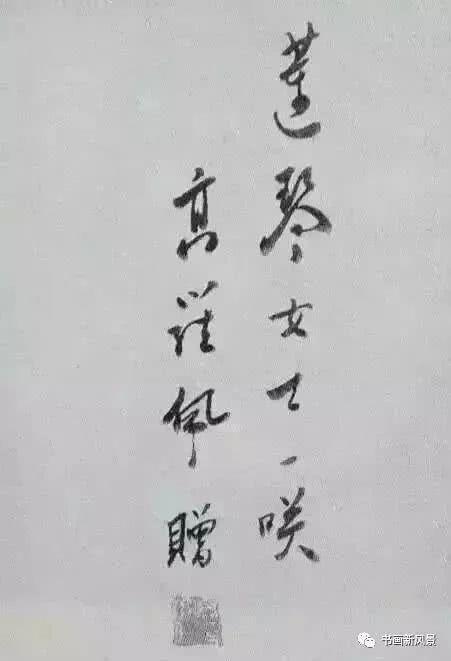 莲琴女士一咲
高罗佩赠
书画新风景